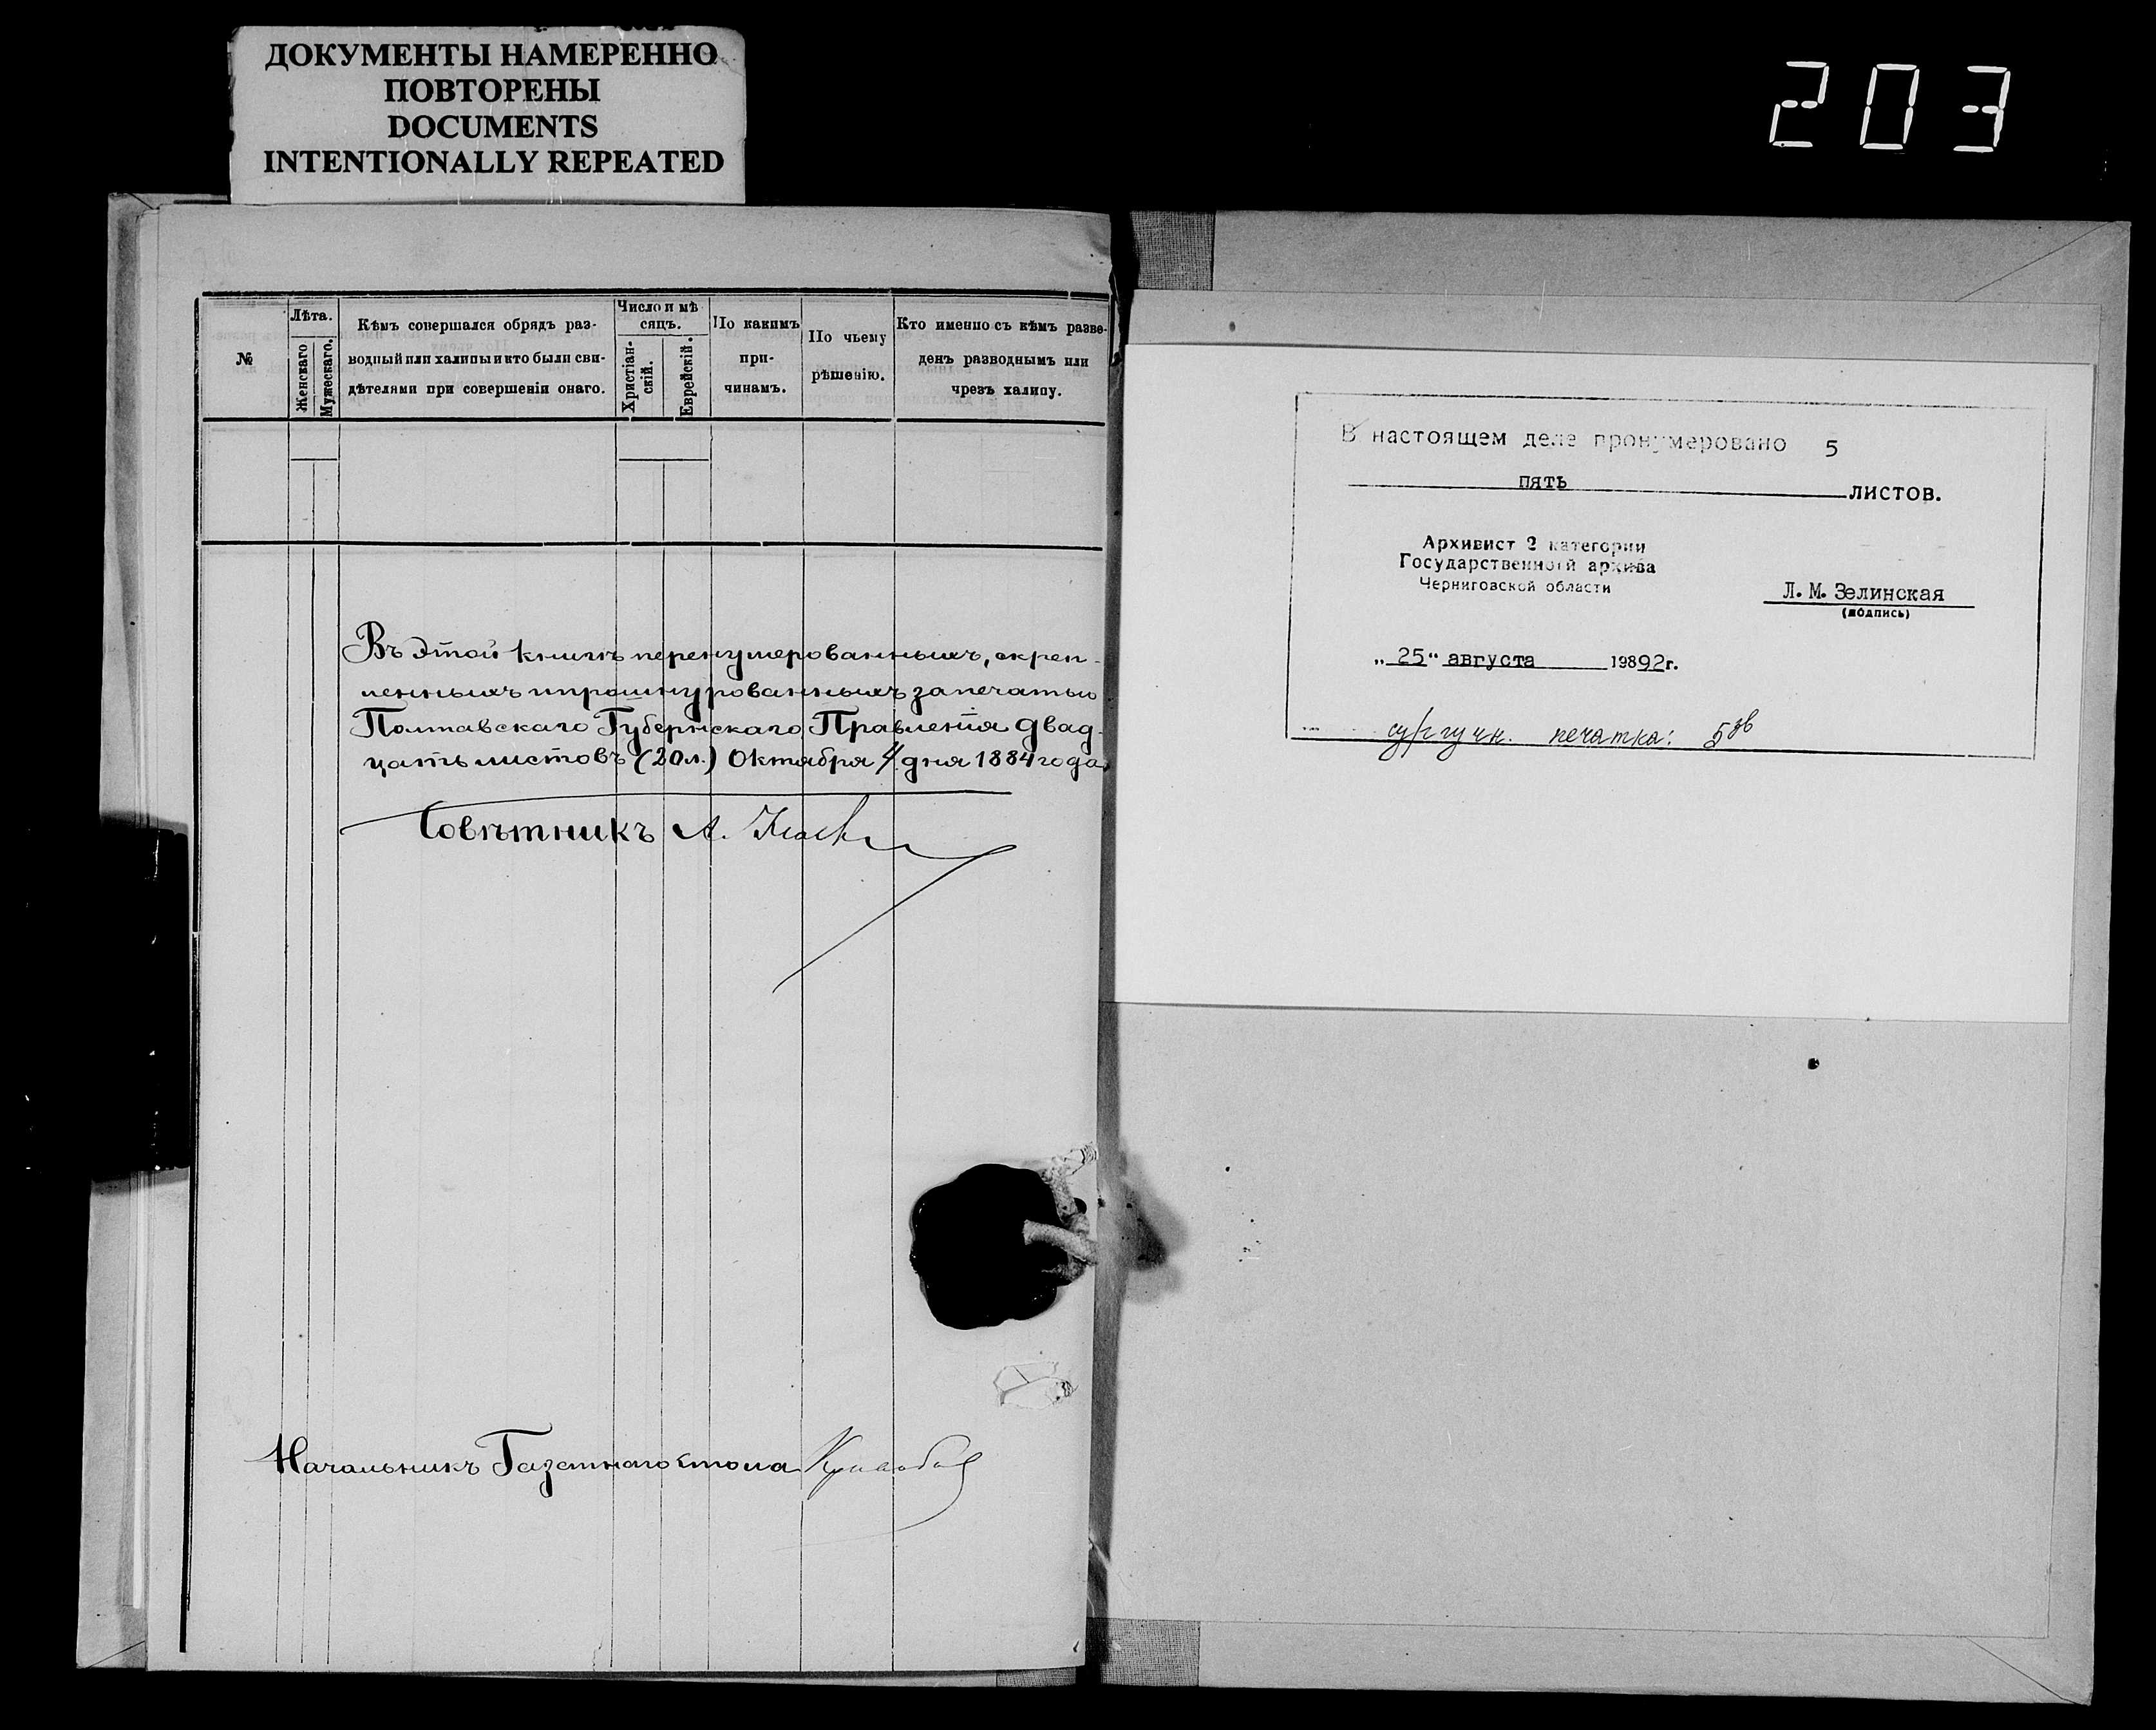 ДОКУМЕНТЫ НАМЕРЕННО
ПОВТОРЕНЫ
DOCUMENTS
INTENTIONALLY REPEATED
203
№
Лѣта.
Женскаго
Мужескаго.
Кѣмъ совершался обрядъ раз-
водный или халицы и кто были сви-
дѣтелями при совершеніи онаго.
Число и мѣ
сяцъ.
Христіан-
скій.
Еврейскій.
По какимъ
при-
чинамъ.
По чьему
рѣшенію.
Кто именно съ кѣмъ разве-
денъ разводнымъ или
чрезъ халицу.
Въ этой книгѣ перенумерованныхъ, скреп-
ленныхъ и прошнурованныхъ за печатью
Полтавскаго Губернскаго Правленія двад-
цать листовъ (20 л.) Октября 4 дня 1884 года
Совѣтникъ А.
Начальникъ Газетнаго стола
В настоящем деле пронумеровано 5
пять листов.
Архивист 2 категории
Государственной архива
Черниговской области
Л.М.Зелинская
(подпись)
„25“ августа 19892г.
сургучн. печатка: